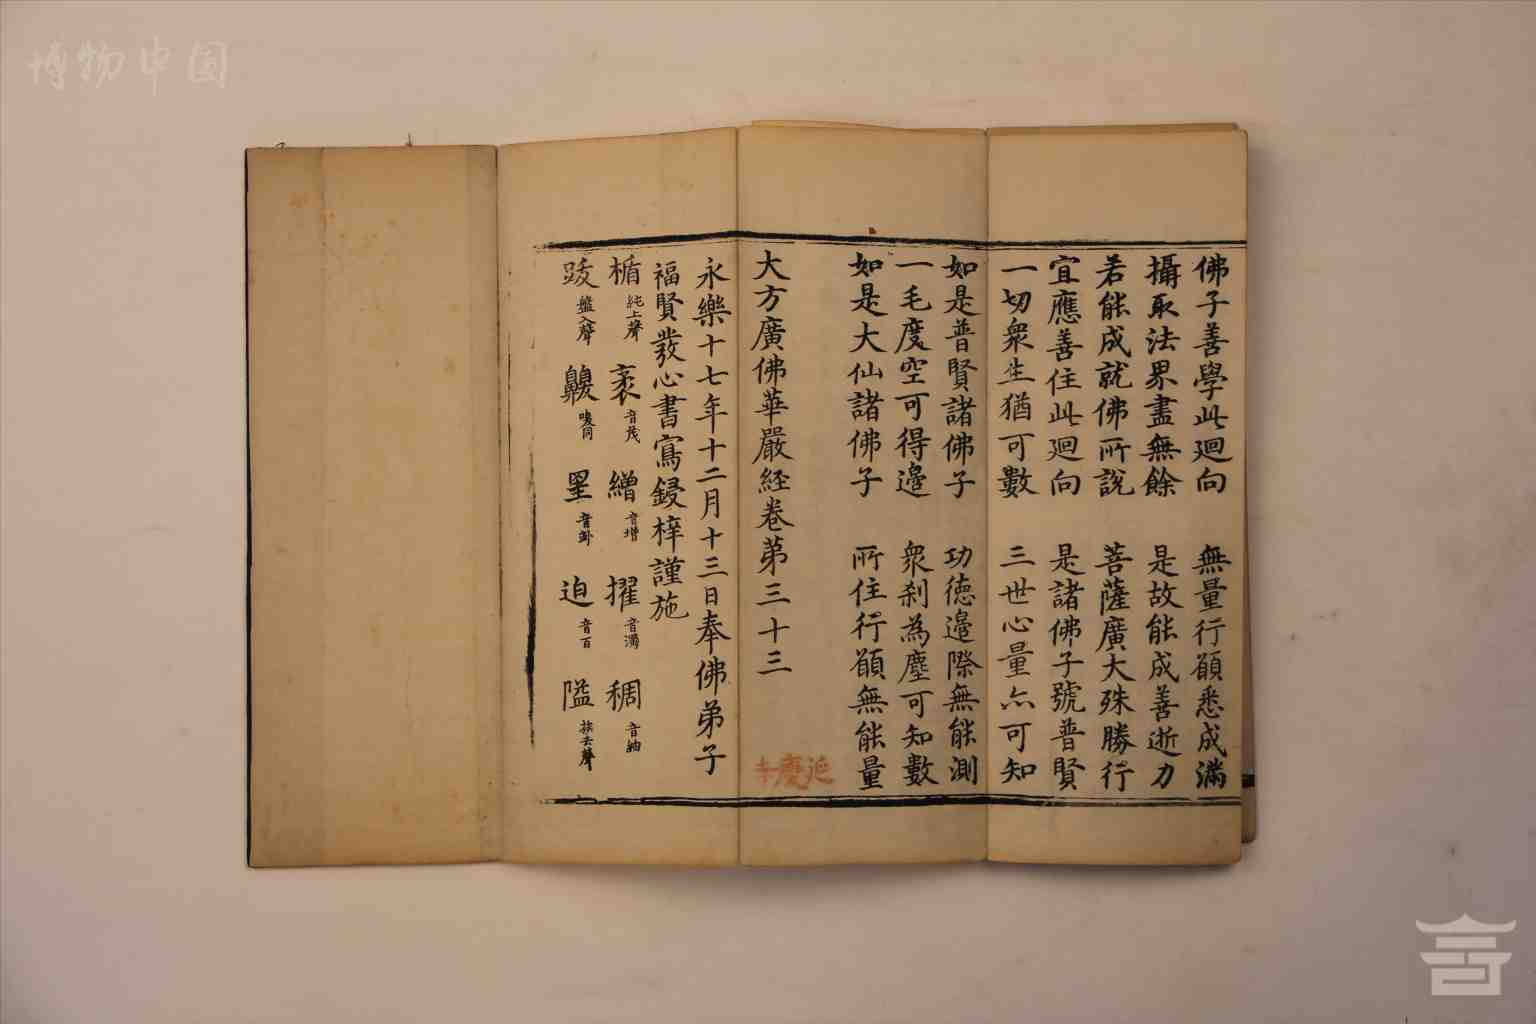 博物中国
佛子善學此迴向　無量行願悉成滿
攝取法界盡無餘　是故能成善逝力
若能成就佛所說　菩薩廣大殊勝行
宜應善住此迴向　是諸佛子號普賢
一切衆生猶可數　三世心量亦可知
如是普賢諸佛子　功德邊際無能測
一毛度空可得邊　衆刹為塵可知數
如是大仙諸佛子　所住行願無能量
大方廣佛華嚴経卷第三十三
延慶寺
永樂十七年十二月十三日奉佛弟子
福賢發心書寫鋟梓謹施
楯 純上聲　袤 音茂　繒 音增　擢 音濁　稠 音紬
跋 盤入聲　齅 嗅同　罣 音卦　迫 音百　隘 挨去聲